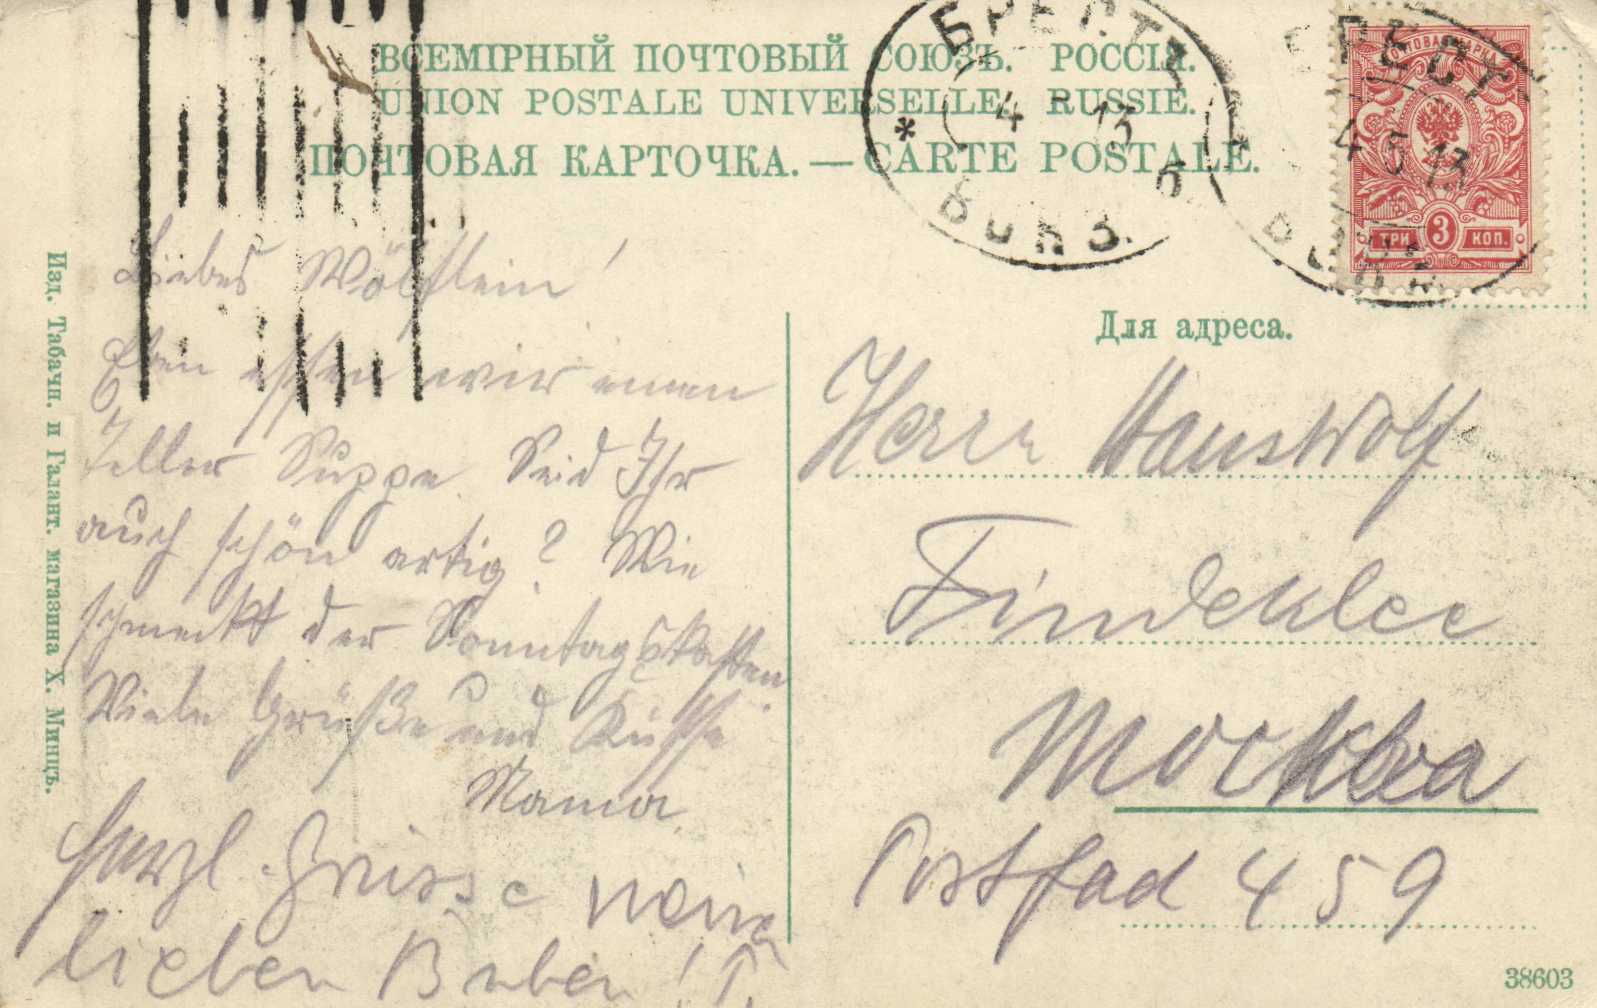 ВСЕМІРНЫЙ ПОЧТОВЫЙ СОЮЗЪ. РОССІЯ.
UNION POSTALE UNIVERSELLE. RUSSIE.
ПОЧТОВАЯ КАРТОЧКА. — CARTE POSTALE.
БРЕСТЪ
4 13
6
ВОКЗ.
БРЕСТ
4 3 13
ПОЧТОВАЯ МАРКА
ТРИ 3 КОП.
Изд. Табачн. и Галант. магазина Х. Минцъ.
Liebes Wölflein!
Eben essen wir einen
Teller Suppe. Seid Ihr
auch schön artig? Wie
schmeckt der Sonntagskasten
Viele Grüße und Küsse
Mama
Herzl. Grüsse meine
lieben Buben!
Для адреса.
Herrn Hanswolf
Findeklee
Москва
Postfad 459
38603